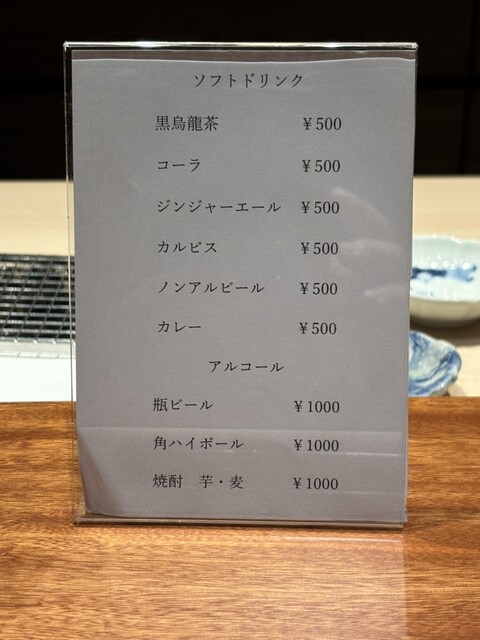 ソフトドリンク
黒烏龍茶 ￥500
コーラ ￥500
ジンジャーエール ￥500
カルピス ￥500
ノンアルビール ￥500
カレー ￥500
アルコール
瓶ビール ￥1000
角ハイボール ￥1000
焼酎　芋・麦 ￥1000